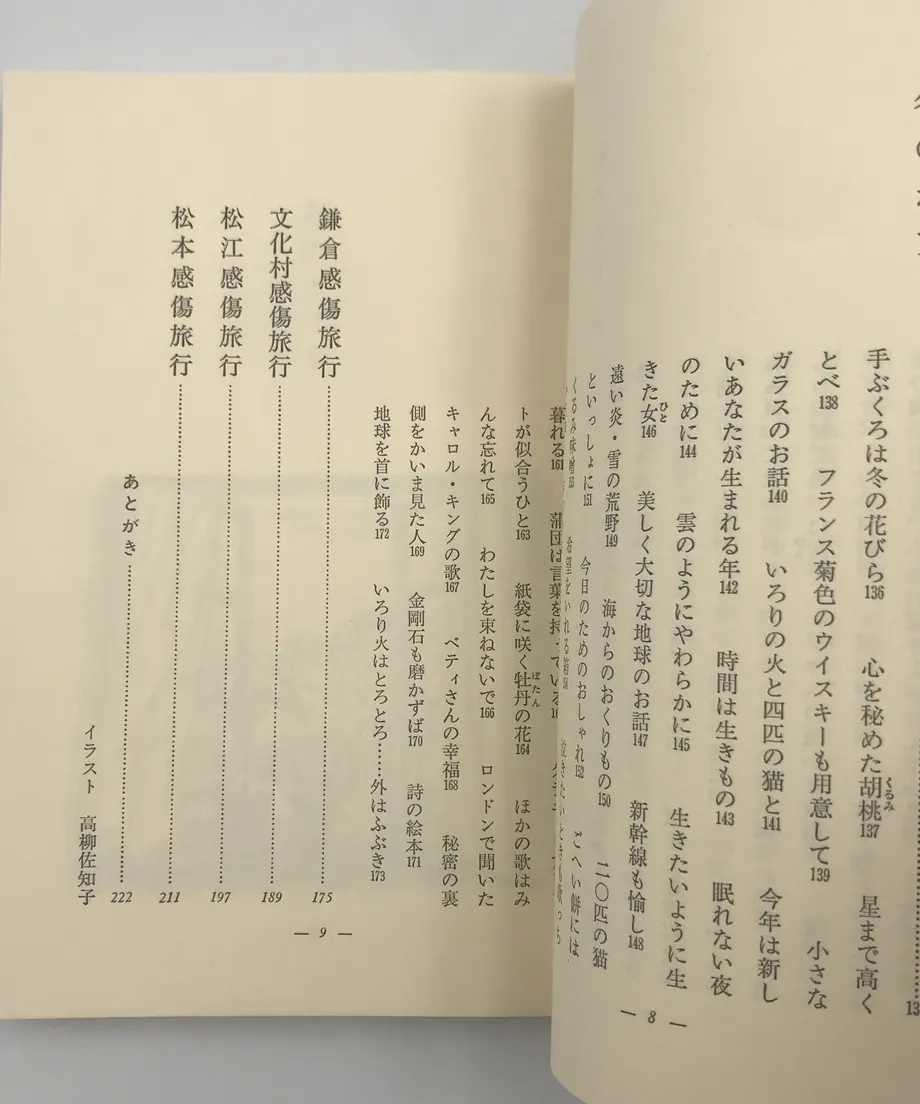 手ぶくろは冬の花びら136　心を秘めた胡桃137　星まで高く
とべ138　フランス菊色のウイスキーも用意して139　小さな
ガラスのお話140　いろりの火と四匹の猫と141　今年は新し
いあなたが生まれる年142　時間は生きもの143　眠れない夜
のために144　雲のようにやわらかに145　生きたいように生
きた女146　美しく大切な地球のお話147　新幹線も愉し148
遠い炎・雪の荒野149　海からのおくりもの150　二〇匹の猫
といっしょに151　今日のためのおしゃれ152　ごへい餅には
くるみ味噌　希望をいれる箱　泣きたいときも歌っち
— 8 —
暮れる161　蒲団は言葉を持っている
トが似合うひと163　紙袋に咲く牡丹の花164　ほかの歌はみ
んな忘れて165　わたしを束ねないで166　ロンドンで聞いた
キャロル・キングの歌167　ベティさんの幸福168　秘密の裏
側をかいま見た人169　金剛石も磨かずば170　詩の絵本171
地球を首に飾る172　いろり火はとろとろ……外はふぶき173
鎌倉感傷旅行……175
文化村感傷旅行……189
松江感傷旅行……197
松本感傷旅行……211
あとがき……222
イラスト　高柳佐知子
— 9 —